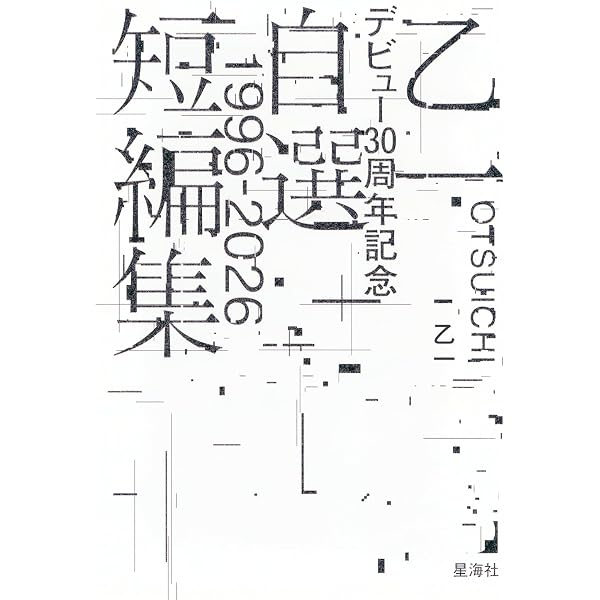 乙一
デビュー30周年記念
自選
短編集
1996-2026
OTSUICHI
乙一
星海社